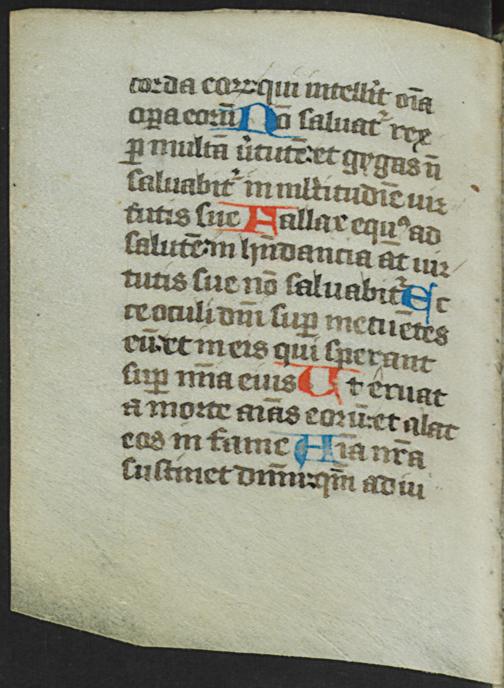 corda eorᷣ: qui intellı̄t om̄a
oꝑa eorū Nō saluat᷑ rex
ꝑ multā ūtutē: et gygas ñ
saluabit᷑ in ml̄titudīe uir
tutis sue Fallax equꝰ ad
salutē: in hūdancia āt uir
tutis sue nō saluabit᷑ Ec
ce oculi dn̄i suꝑ metuētes
eū: et in eis qui sperant
suꝑ mīa eius Ut eruat
a morte aīas eorū: et alat
eos in fame Aīa nr̄a
sustinet dn̄m: qm̄ adiu